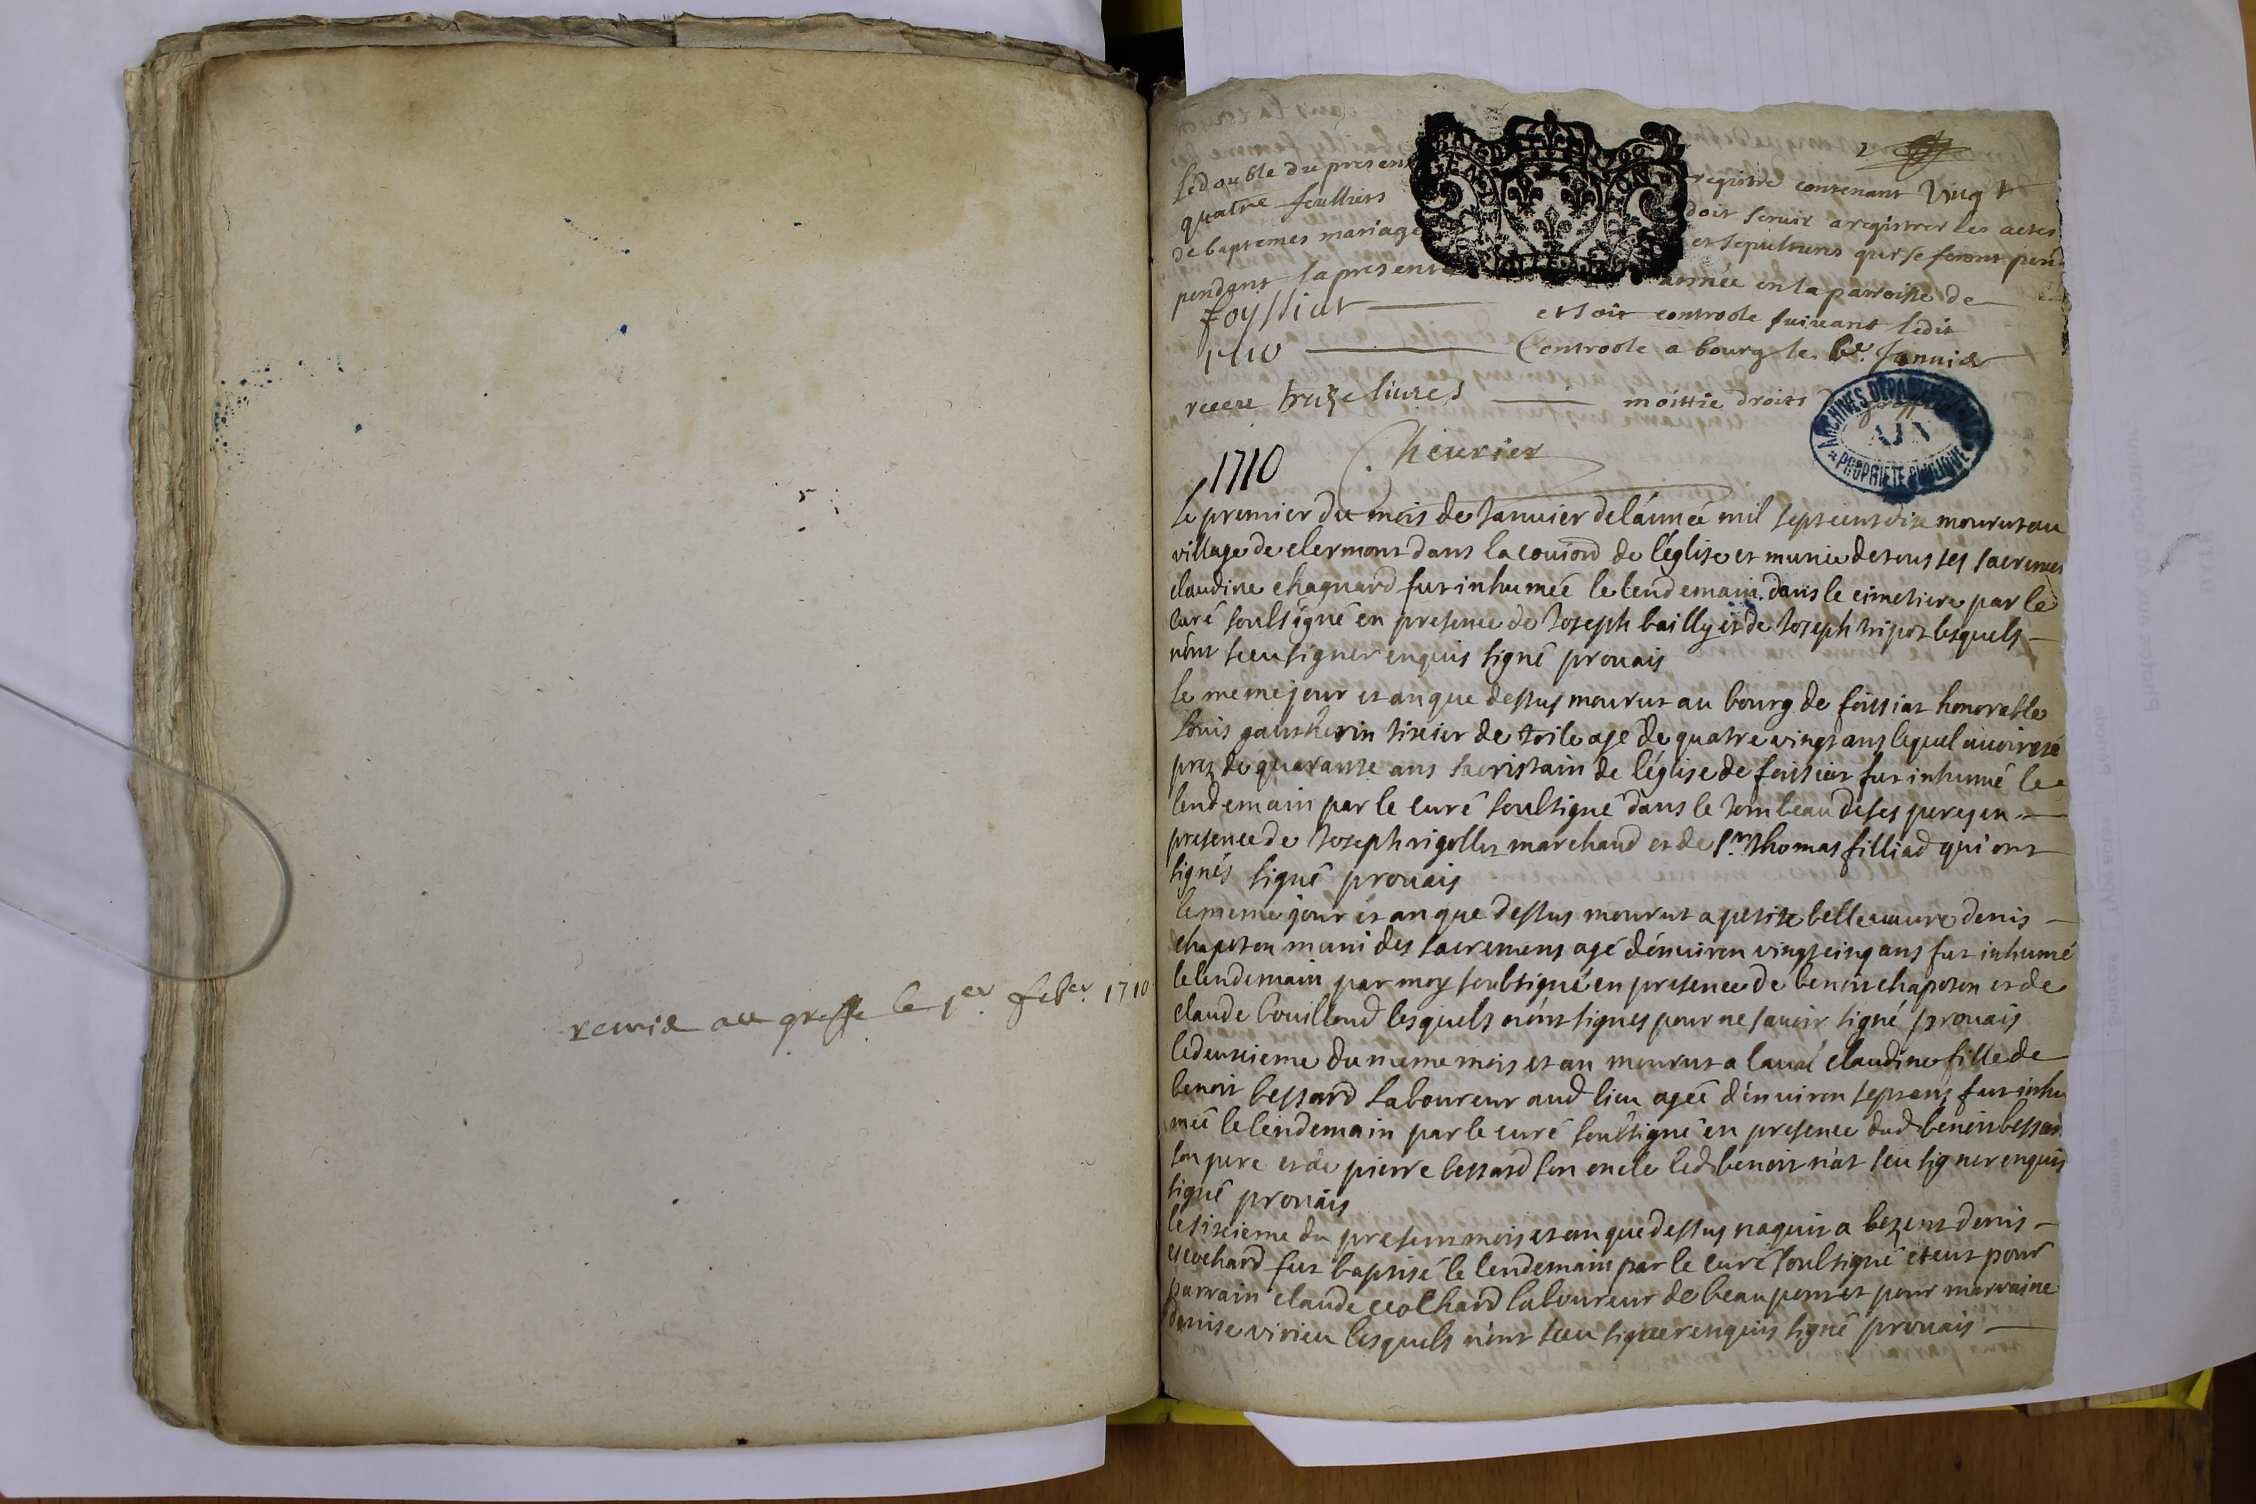 remis au greffe le 1er feber. 1710
2
Le double du present registre contenant vingt
quatre feulliets doit servir a registrer les actes
de baptemes mariage et sepultures qui se feront pend
pendant la presente année en la parroisse de
foyssiat et soit controole suivant ledit
1710 Controole a bourg le 6e. Janvier
receu treize livres moittie droits
Cheurier
1710
Le premier du mois de Janvier de l'année mil sept cent dix mourut au
village de clermont dans la de l'église et munie de tous ses sacremes
claudine chagnard fut inhumée le lendemain dans le cimetiere par le
curé soubsigné en presence de Joseph bailly et de Joseph tripoz lesquels
n'ont sceu signer enquis signé prouais
le meme jour et an que dessus mourut au bourg de foissiat honorable
Louis gautherin tissier de toile agé de quatre vingt ans lequel avoit esté
prez de quarante ans sacristain de l'église de foissiat fut inhumé le
lendemain par le curé soubsigné dans le tombeau de ses peres en
presence de Joseph rigollet marchand et de Sr. thomas filliad qui ont
signés signé prouais
le meme jour et an que dessus mourut a petite bellevavre denis
chapoton muni des sacremens agé d'environ vingt cinq ans fut inhumé
le lendemain par moy soubsigné en presence de benoit chapoton et de
claude bouilloud lesquels n'ont signés pour ne savoir signé prouais
le deuxieme du meme mois et an mourut a laval claudine fille de
benoit bessard laboureur aud lieu agée d'environ sept ans fut inhu
mée le lendemain par le curé soubsigné en presence dud benoit bessard
son pere et de pierre bessard son oncle led benoit n'at seu signer enquis
signé prouais
le sixieme du present mois et an que dessus naquit a bezent denis
ecochard fut baptisé le lendemain par le curé soubsigné et eut pour
parrain claude ecochard laboureur de beaupont et pour marraine
denise virieu lesquels n'ont sceu signer enquis signé prouais
ARCHIVES DEPARTEMENTALES
AIN
* PROPRIETE PUBLIQUE *